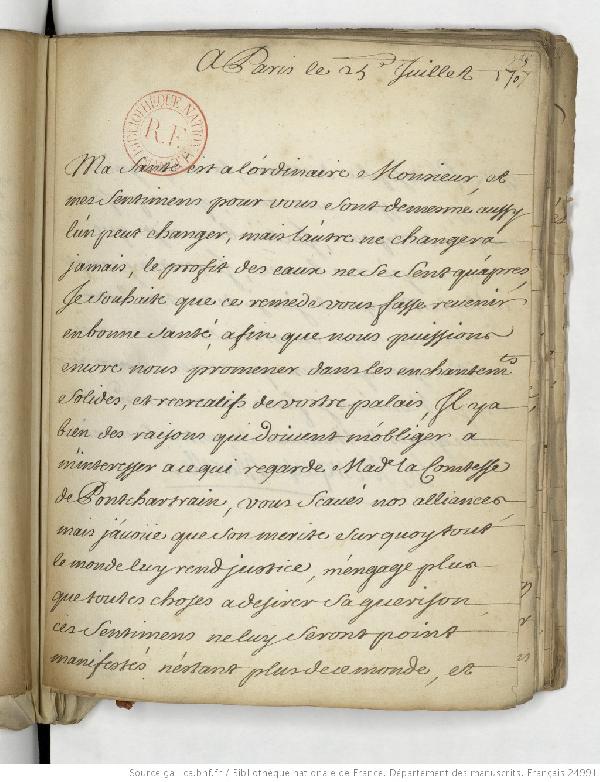 A Paris le 25e Juillet 1707
BIBLIOTHEQUE NATIONALE
R.F.
Ma santé est a l'ordinaire Monsieur, et
mes sentimens pour vous sont de mesme aussy
l'un peut changer, mais l'autre ne changera
jamais, le profit des eaux ne se sent qu'apres
Je souhaite que ce remede vous fasse revenir
en bonne santé, afin que nous puissions
encore nous promener dans les enchantem.ts
solides, et recreatifs de vortre palais, Il y a
bien des raisons qui doivent m'obliger a
m'interesser a ce qui regarde Mad.e la Comtesse
de Pontchartrain, vous scaués nos alliances
mais j'auoüe que son merite sur quoy tout
le monde luy rend justice, m'engage plus
que toutes choses a desirer sa guerison,
ces sentimens ne luy seront point
manifestés n'estant plus de ce monde, et
Source gallica.bnf.fr / Bibliothèque nationale de France. Département des manuscrits. Français 24991